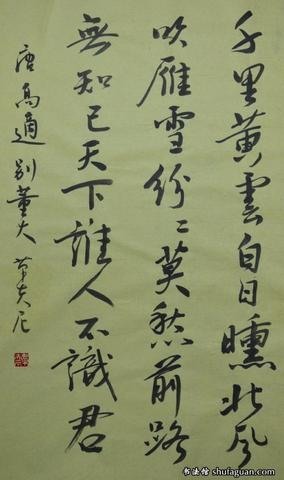 千里黃雲白日曛北风
吹雁雪紛〻莫愁前路
無知己天下誰人不識君
唐高適別董大
书法馆 shufaguan.com